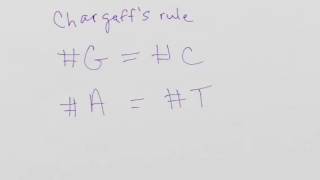 Chargaff's rule
#G = #C
#A = #T